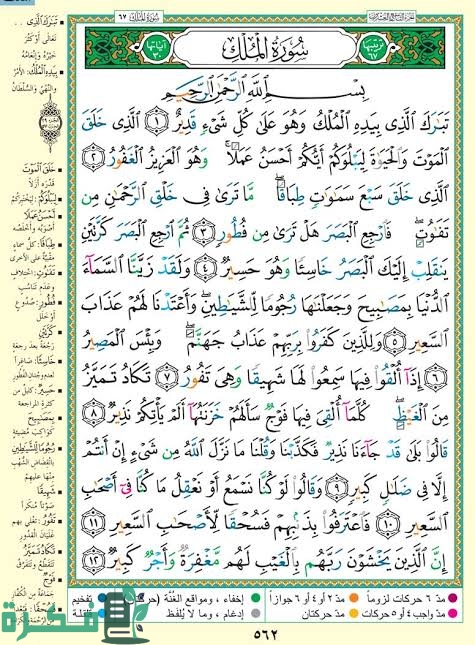 الجزء التاسع والعشرون
سُورَةُ المُلْكِ ٦٧
ترتيبها ٦٧
سُورَةُ المُلْكِ
آياتها ٣٠
بِسْمِ ٱللَّهِ ٱلرَّحْمَٰنِ ٱلرَّحِيمِ
تَبَٰرَكَ ٱلَّذِى بِيَدِهِ ٱلْمُلْكُ وَهُوَ عَلَىٰ كُلِّ شَىْءٍ قَدِيرٌ ١ ٱلَّذِى خَلَقَ
ٱلْمَوْتَ وَٱلْحَيَوٰةَ لِيَبْلُوَكُمْ أَيُّكُمْ أَحْسَنُ عَمَلًا ۚ وَهُوَ ٱلْعَزِيزُ ٱلْغَفُورُ ٢
ٱلَّذِى خَلَقَ سَبْعَ سَمَٰوَٰتٍ طِبَاقًا ۖ مَّا تَرَىٰ فِى خَلْقِ ٱلرَّحْمَٰنِ مِن
تَفَٰوُتٍ ۖ فَٱرْجِعِ ٱلْبَصَرَ هَلْ تَرَىٰ مِن فُطُورٍ ٣ ثُمَّ ٱرْجِعِ ٱلْبَصَرَ كَرَّتَيْنِ
يَنقَلِبْ إِلَيْكَ ٱلْبَصَرُ خَاسِئًا وَهُوَ حَسِيرٌ ٤ وَلَقَدْ زَيَّنَّا ٱلسَّمَآءَ
ٱلدُّنْيَا بِمَصَٰبِيحَ وَجَعَلْنَٰهَا رُجُومًا لِّلشَّيَٰطِينِ ۖ وَأَعْتَدْنَا لَهُمْ عَذَابَ
ٱلسَّعِيرِ ٥ وَلِلَّذِينَ كَفَرُوا۟ بِرَبِّهِمْ عَذَابُ جَهَنَّمَ ۖ وَبِئْسَ ٱلْمَصِيرُ
٦ إِذَآ أُلْقُوا۟ فِيهَا سَمِعُوا۟ لَهَا شَهِيقًا وَهِىَ تَفُورُ ٧ تَكَادُ تَمَيَّزُ
مِنَ ٱلْغَيْظِ ۖ كُلَّمَآ أُلْقِىَ فِيهَا فَوْجٌ سَأَلَهُمْ خَزَنَتُهَآ أَلَمْ يَأْتِكُمْ نَذِيرٌ ٨
قَالُوا۟ بَلَىٰ قَدْ جَآءَنَا نَذِيرٌ فَكَذَّبْنَا وَقُلْنَا مَا نَزَّلَ ٱللَّهُ مِن شَىْءٍ إِنْ أَنتُمْ
إِلَّا فِى ضَلَٰلٍ كَبِيرٍ ٩ وَقَالُوا۟ لَوْ كُنَّا نَسْمَعُ أَوْ نَعْقِلُ مَا كُنَّا فِىٓ أَصْحَٰبِ
ٱلسَّعِيرِ ١٠ فَٱعْتَرَفُوا۟ بِذَنۢبِهِمْ فَسُحْقًا لِّأَصْحَٰبِ ٱلسَّعِيرِ ١١
إِنَّ ٱلَّذِينَ يَخْشَوْنَ رَبَّهُم بِٱلْغَيْبِ لَهُم مَّغْفِرَةٌ وَأَجْرٌ كَبِيرٌ ١٢
تَبَرَكَ الَّذِى
تعالى أو كثر
خيره وإنعامه
بِيَدِهِ الْمُلْكُ: الأمر
والنهي والسلطان
خَلَقَ الْمَوْتَ
قدّره أزلاً
لِيَبْلُوَكُمْ: ليختبركم
أَحْسَنُ عَمَلًا
أصوبه وأخلصه
طِبَاقًا: كل سماء
مقببة على الأخرى
تَفَاوُتٍ: اختلاف
وعدم تناسب
فُطُورٍ: صدوع
أو خلل
كَرَّتَيْنِ
رجعة بعد رجعة
خَاسِئًا: صاغراً
حَسِيرٌ: كليل من
كثرة المراجعة
بِمَصَابِيحَ
كواكب مضيئة
رُجُومًا لِلشَّيَاطِينِ
بانقضاض الشهب
منها عليهم
شَهِيقًا
صوتاً منكراً
تَفُورُ: تغلي بهم
غليان القدور
تَكَادُ تَمَيَّزُ
تتقطع وتتفرق
فَوْجٌ
جماعة من الكفار
مدّ ٦ حركات لزوماً
مدّ ٢ أو ٤ أو ٦ جوازاً
إخفاء، ومواقع الغُنّة
تفخيم
مدّ واجب ٤ أو ٥ حركات
مدّ حركتان
إدغام، وما لا يُلفظ
قلقلة
فكرة
٥٦٢